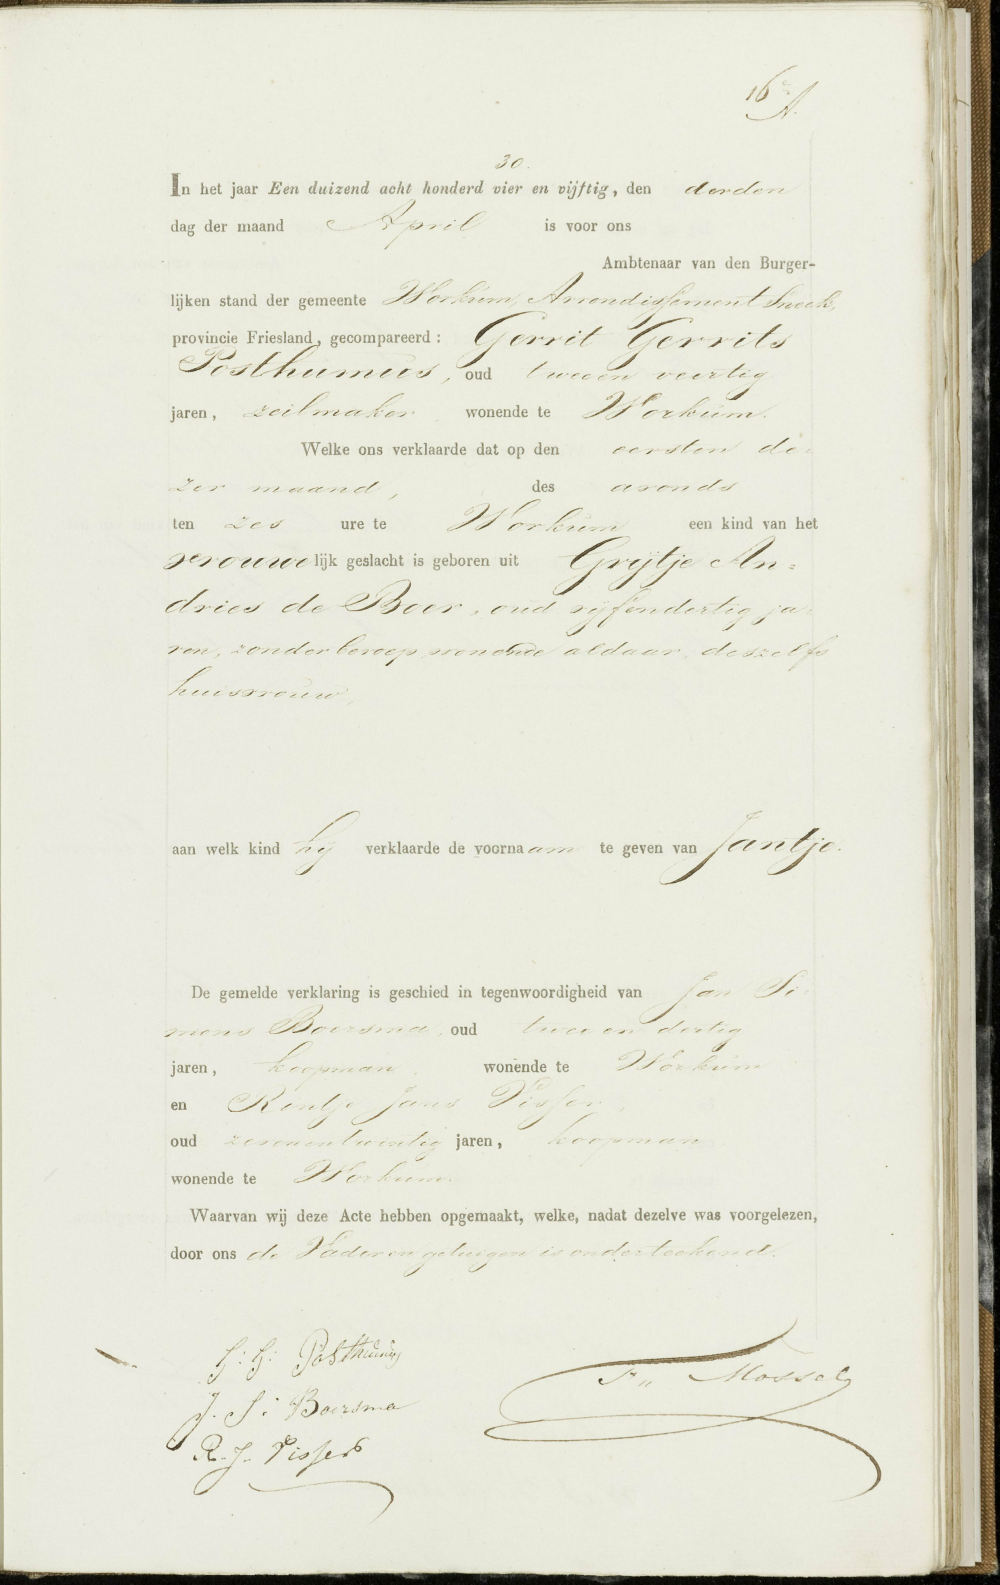 16 A.
30.
In het jaar Een duizend acht honderd vier en vijftig, den derden
dag der maand April is voor ons
Ambtenaar van den Burger-
lijken stand der gemeente Workum, Arrondissement Sneek,
provincie Friesland, gecompareerd: Gerrit Gerrits
Posthumus, oud twee en veertig
jaren, zeilmaker wonende te Workum.
Welke ons verklaarde dat op den eersten de-
zer maand, des avonds
ten zes ure te Workum een kind van het
vrouwelijk geslacht is geboren uit Grijtje An-
dries de Boer, oud vijfendertig ja-
ren, zonder beroep, wonende aldaar, deszelfs
huisvrouw,
aan welk kind hij verklaarde de voornaam te geven van Jantje.
De gemelde verklaring is geschied in tegenwoordigheid van Jan Si-
mons Boersma, oud twee en dertig
jaren, koopman, wonende te Workum
en Rintje Jans Visser,
oud zevenentwintig jaren, koopman
wonende te Workum.
Waarvan wij deze Acte hebben opgemaakt, welke, nadat dezelve was voorgelezen,
door ons de Vader en getuigen is onderteekend.
G: G: Posthumus
J. S: Boersma
R. J. Visser
F. Mossel